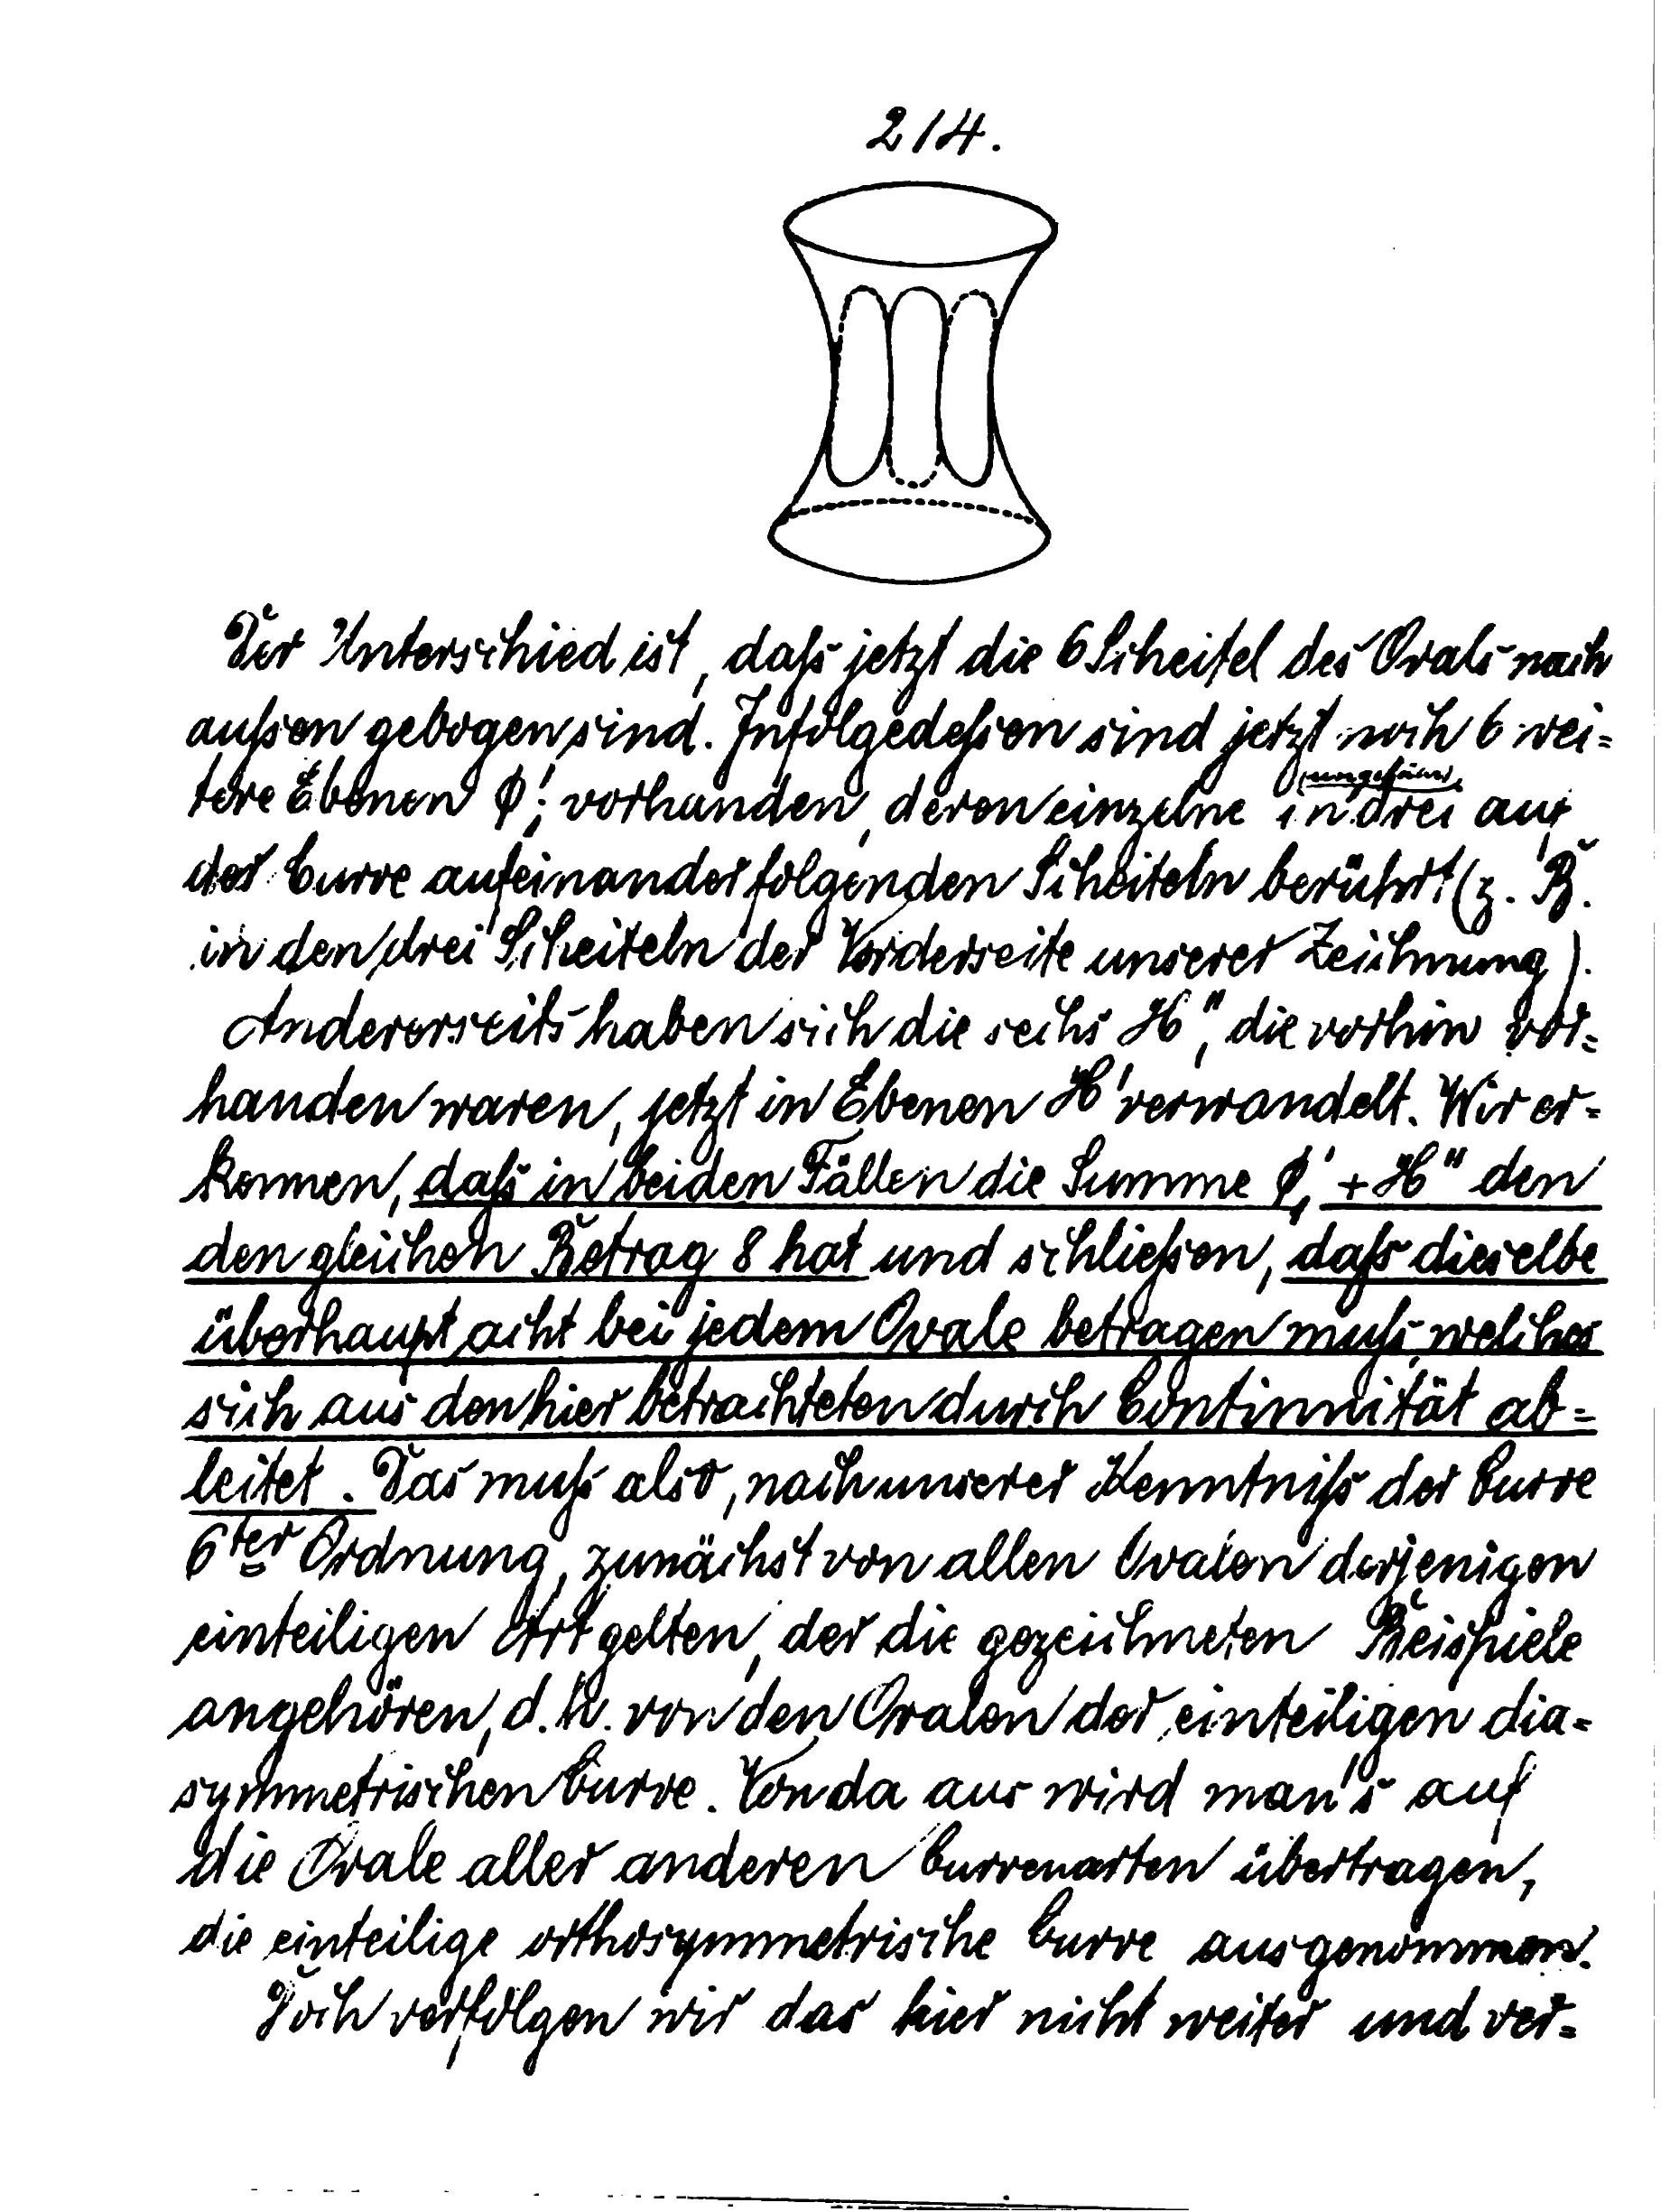 214.
Der Unterschied ist, daſs jetzt die 6 Scheitel des Ovals nach
auſsen gebogen sind. Infolgedeſsen sind jetzt noch 6 wei=
tere Ebenen ϕ₁' vorhanden, deren einzelne (ungefähr) in drei auf
der Curve aufeinanderfolgenden Scheiteln berührt (z. B.
in den drei Scheiteln der Vorderseite unserer Zeichnung).
Andererseits haben sich die sechs H", die vorhin vor=
handen waren, jetzt in Ebenen H' verwandelt. Wir er=
kennen, daſs in beiden Fällen die Summe ϕ₁' + H" den
den gleichen Betrag 8 hat und schlieſsen, daſs dieselbe
überhaupt acht bei jedem Ovale betragen muſs, welches
sich aus den hier betrachteten durch Continuität ab=
leitet. Das muſs also, nach unserer Kenntniſs der Curve
6ter Ordnung, zunächst von allen Ovalen derjenigen
einteiligen Art gelten, der die gezeichneten Beispiele
angehören, d. h. von den Ovalen der einteiligen dia=
symmetrischen Curve. Von da aus wird man's auf
die Ovale aller anderen Curvenarten übertragen,
die einteilige orthosymmetrische Curve ausgenommen.
Doch verfolgen wir das hier nicht weiter und ver=